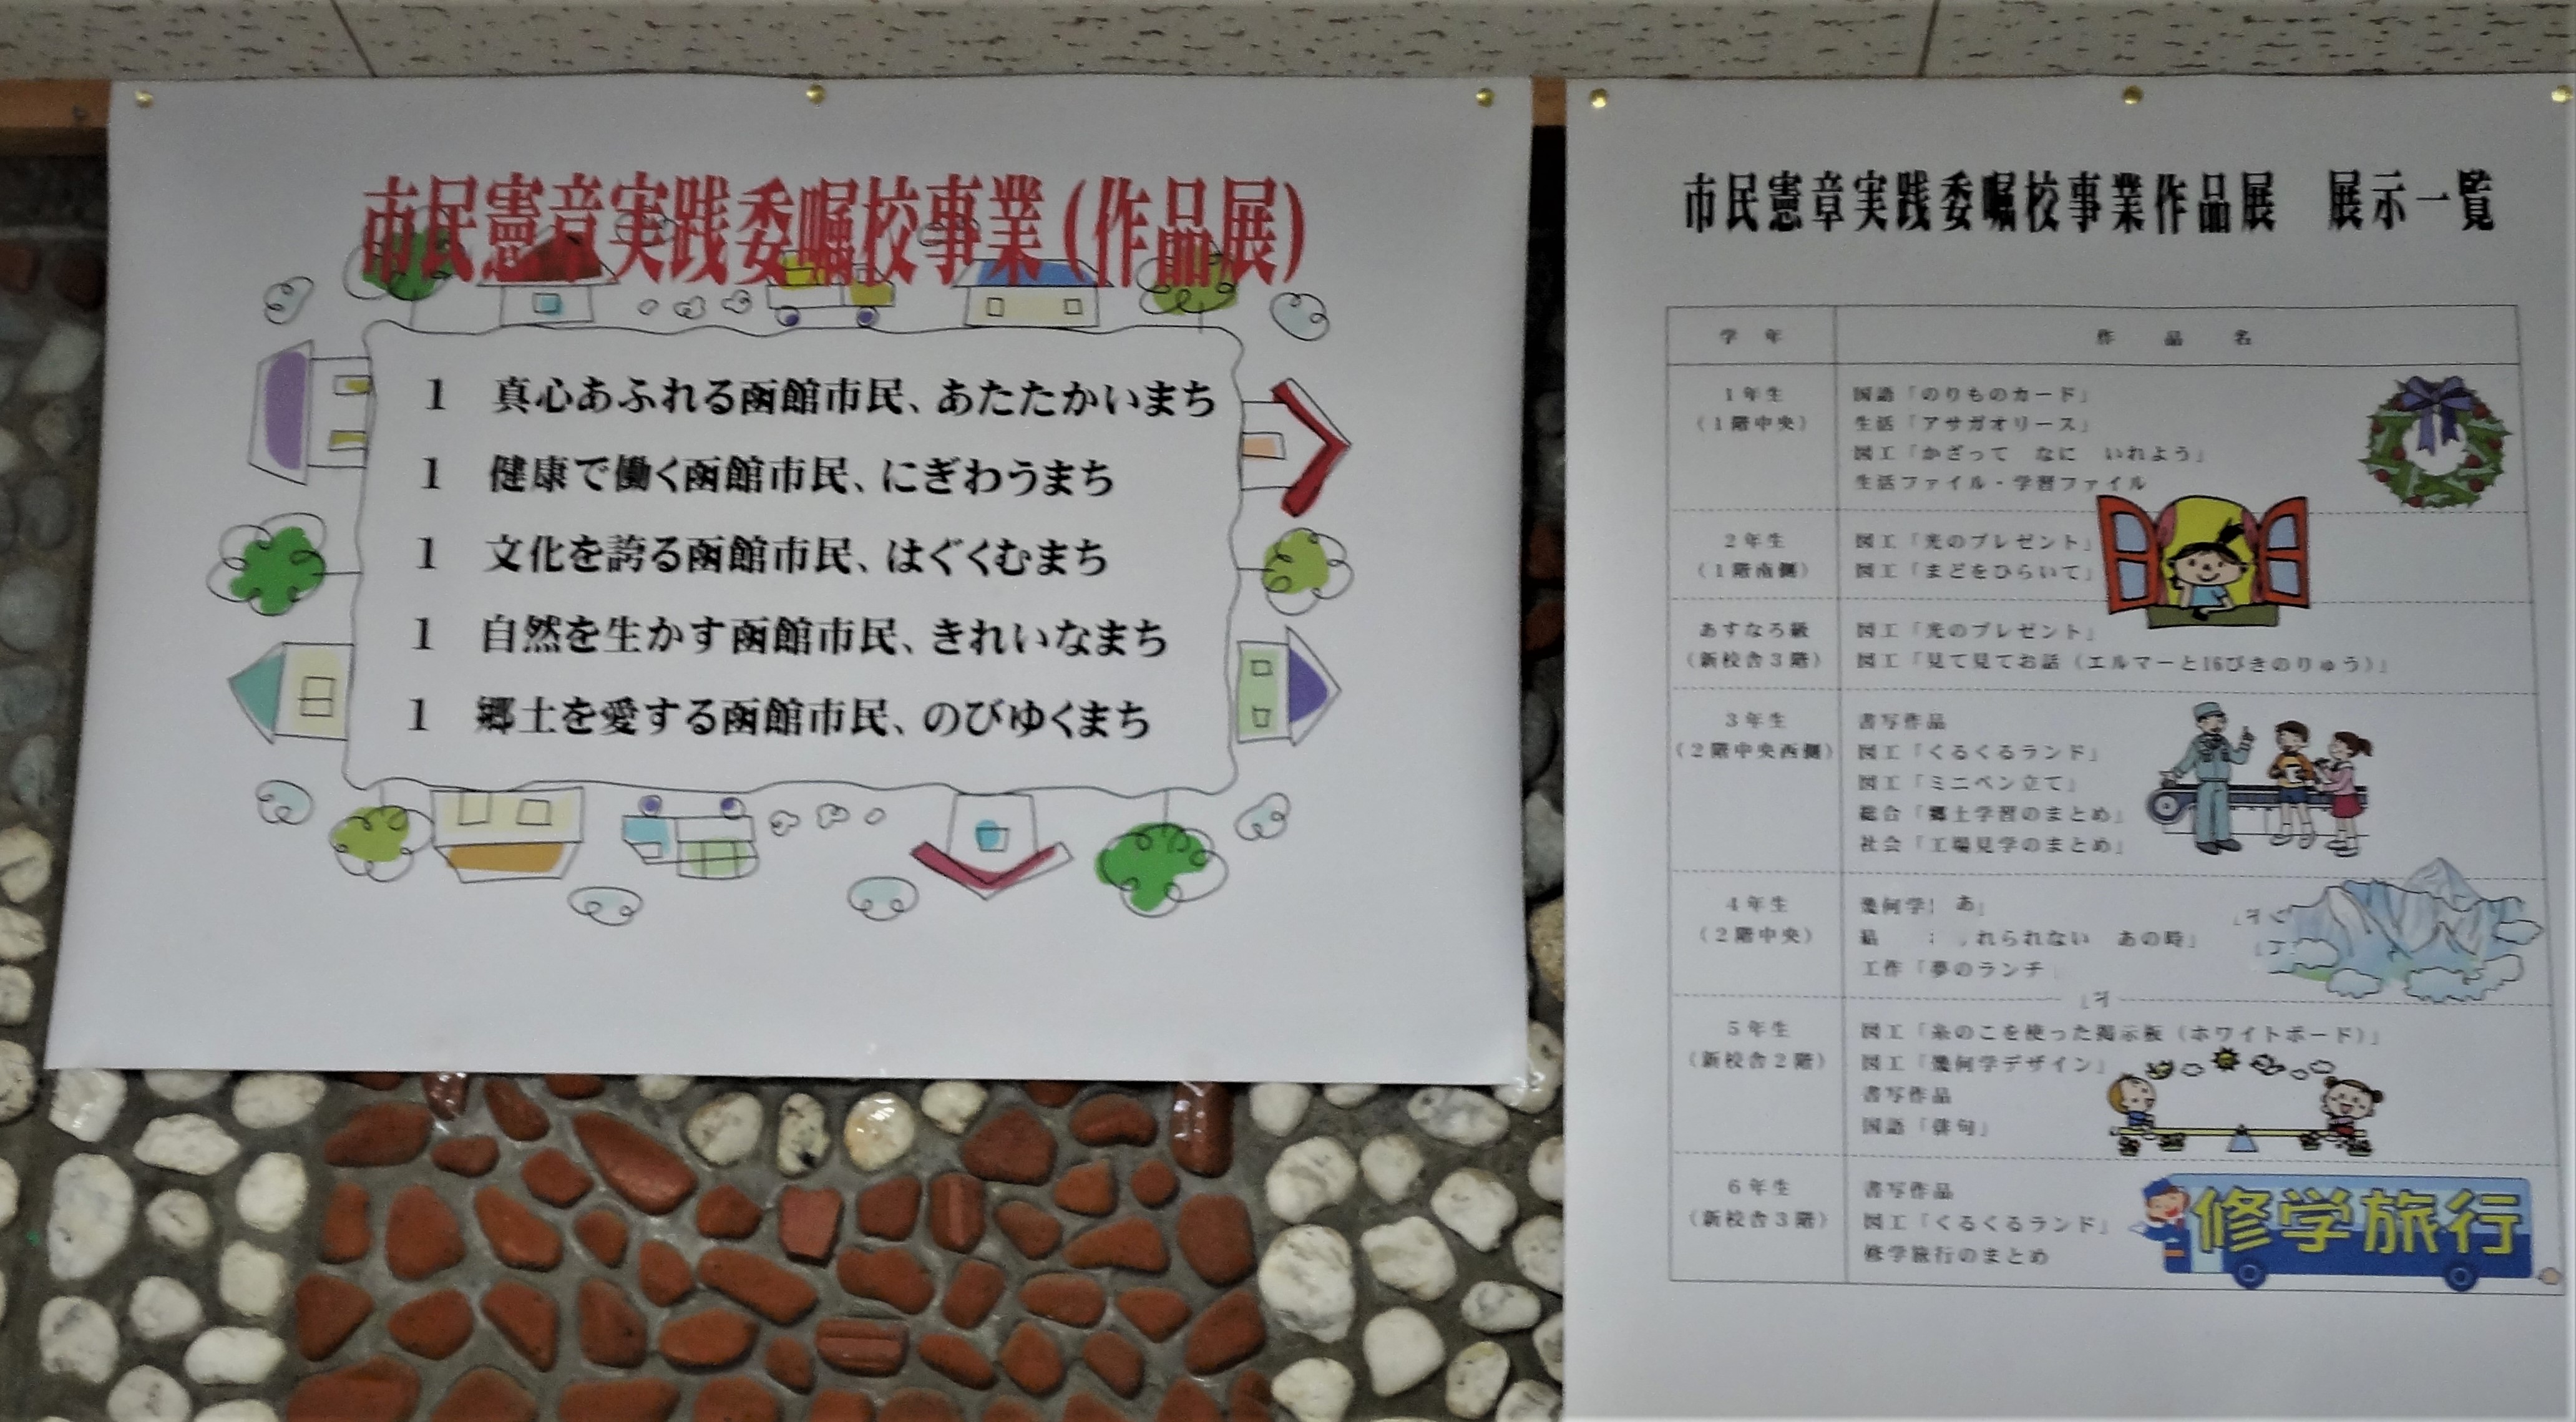 市民憲章実践委嘱校事業(作品展)
1 真心あふれる函館市民、あたたかいまち
1 健康で働く函館市民、にぎわうまち
1 文化を誇る函館市民、はぐくむまち
1 自然を生かす函館市民、きれいなまち
1 郷土を愛する函館市民、のびゆくまち
市民憲章実践委嘱校事業作品展 展示一覧
学年 作品名
1年生 国語「のりものカード」
(1階中央) 生活「アサガオリース」
図工「かざって なに いれよう」
生活ファイル・学習ファイル
2年生 図工「光のプレゼント」
(1階南側) 図工「まどをひらいて」
あすなろ級 図工「光のプレゼント」
(新校舎3階) 図工「見て見てお話(エルマーと16ぴきのりゅう)」
3年生 書写作品
(2階中央西側) 図工「くるくるランド」
図工「ミニペン立て」
総合「郷土学習のまとめ」
社会「工場見学のまとめ」
4年生 幾何学 あ」
(2階中央) れられない あの時」
工作「夢のランチ
5年生 図工「糸のこを使った掲示板(ホワイトボード)」
(新校舎2階) 図工「幾何学デザイン」
書写作品
国語「俳句」
6年生 書写作品
(新校舎3階) 図工「くるくるランド」
修学旅行のまとめ
修学旅行